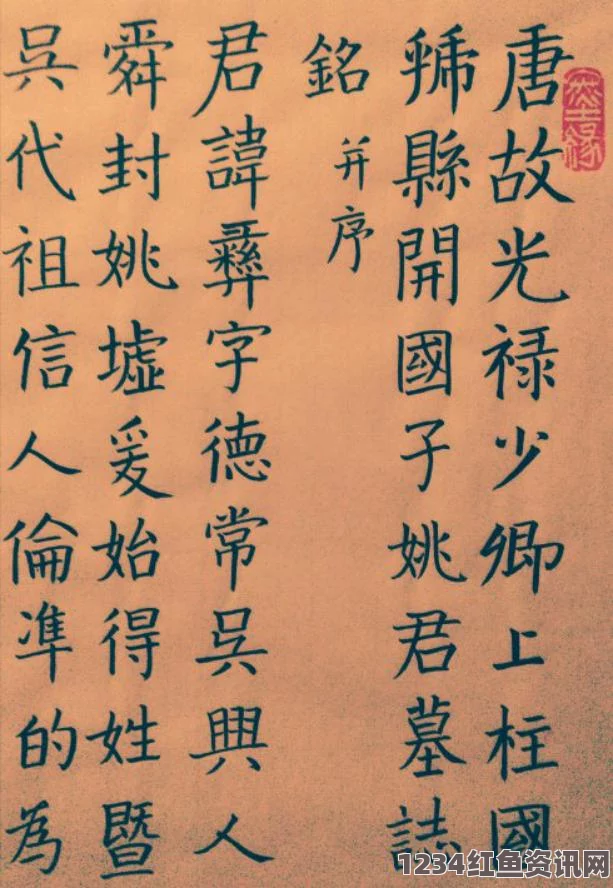 唐故光禄少卿上柱國
虢縣開國子姚君墓誌
銘并序
君諱彝字德常吳興人
舜封姚墟爰始得姓暨
吳代祖信人倫準的為
1234红鱼资讯网